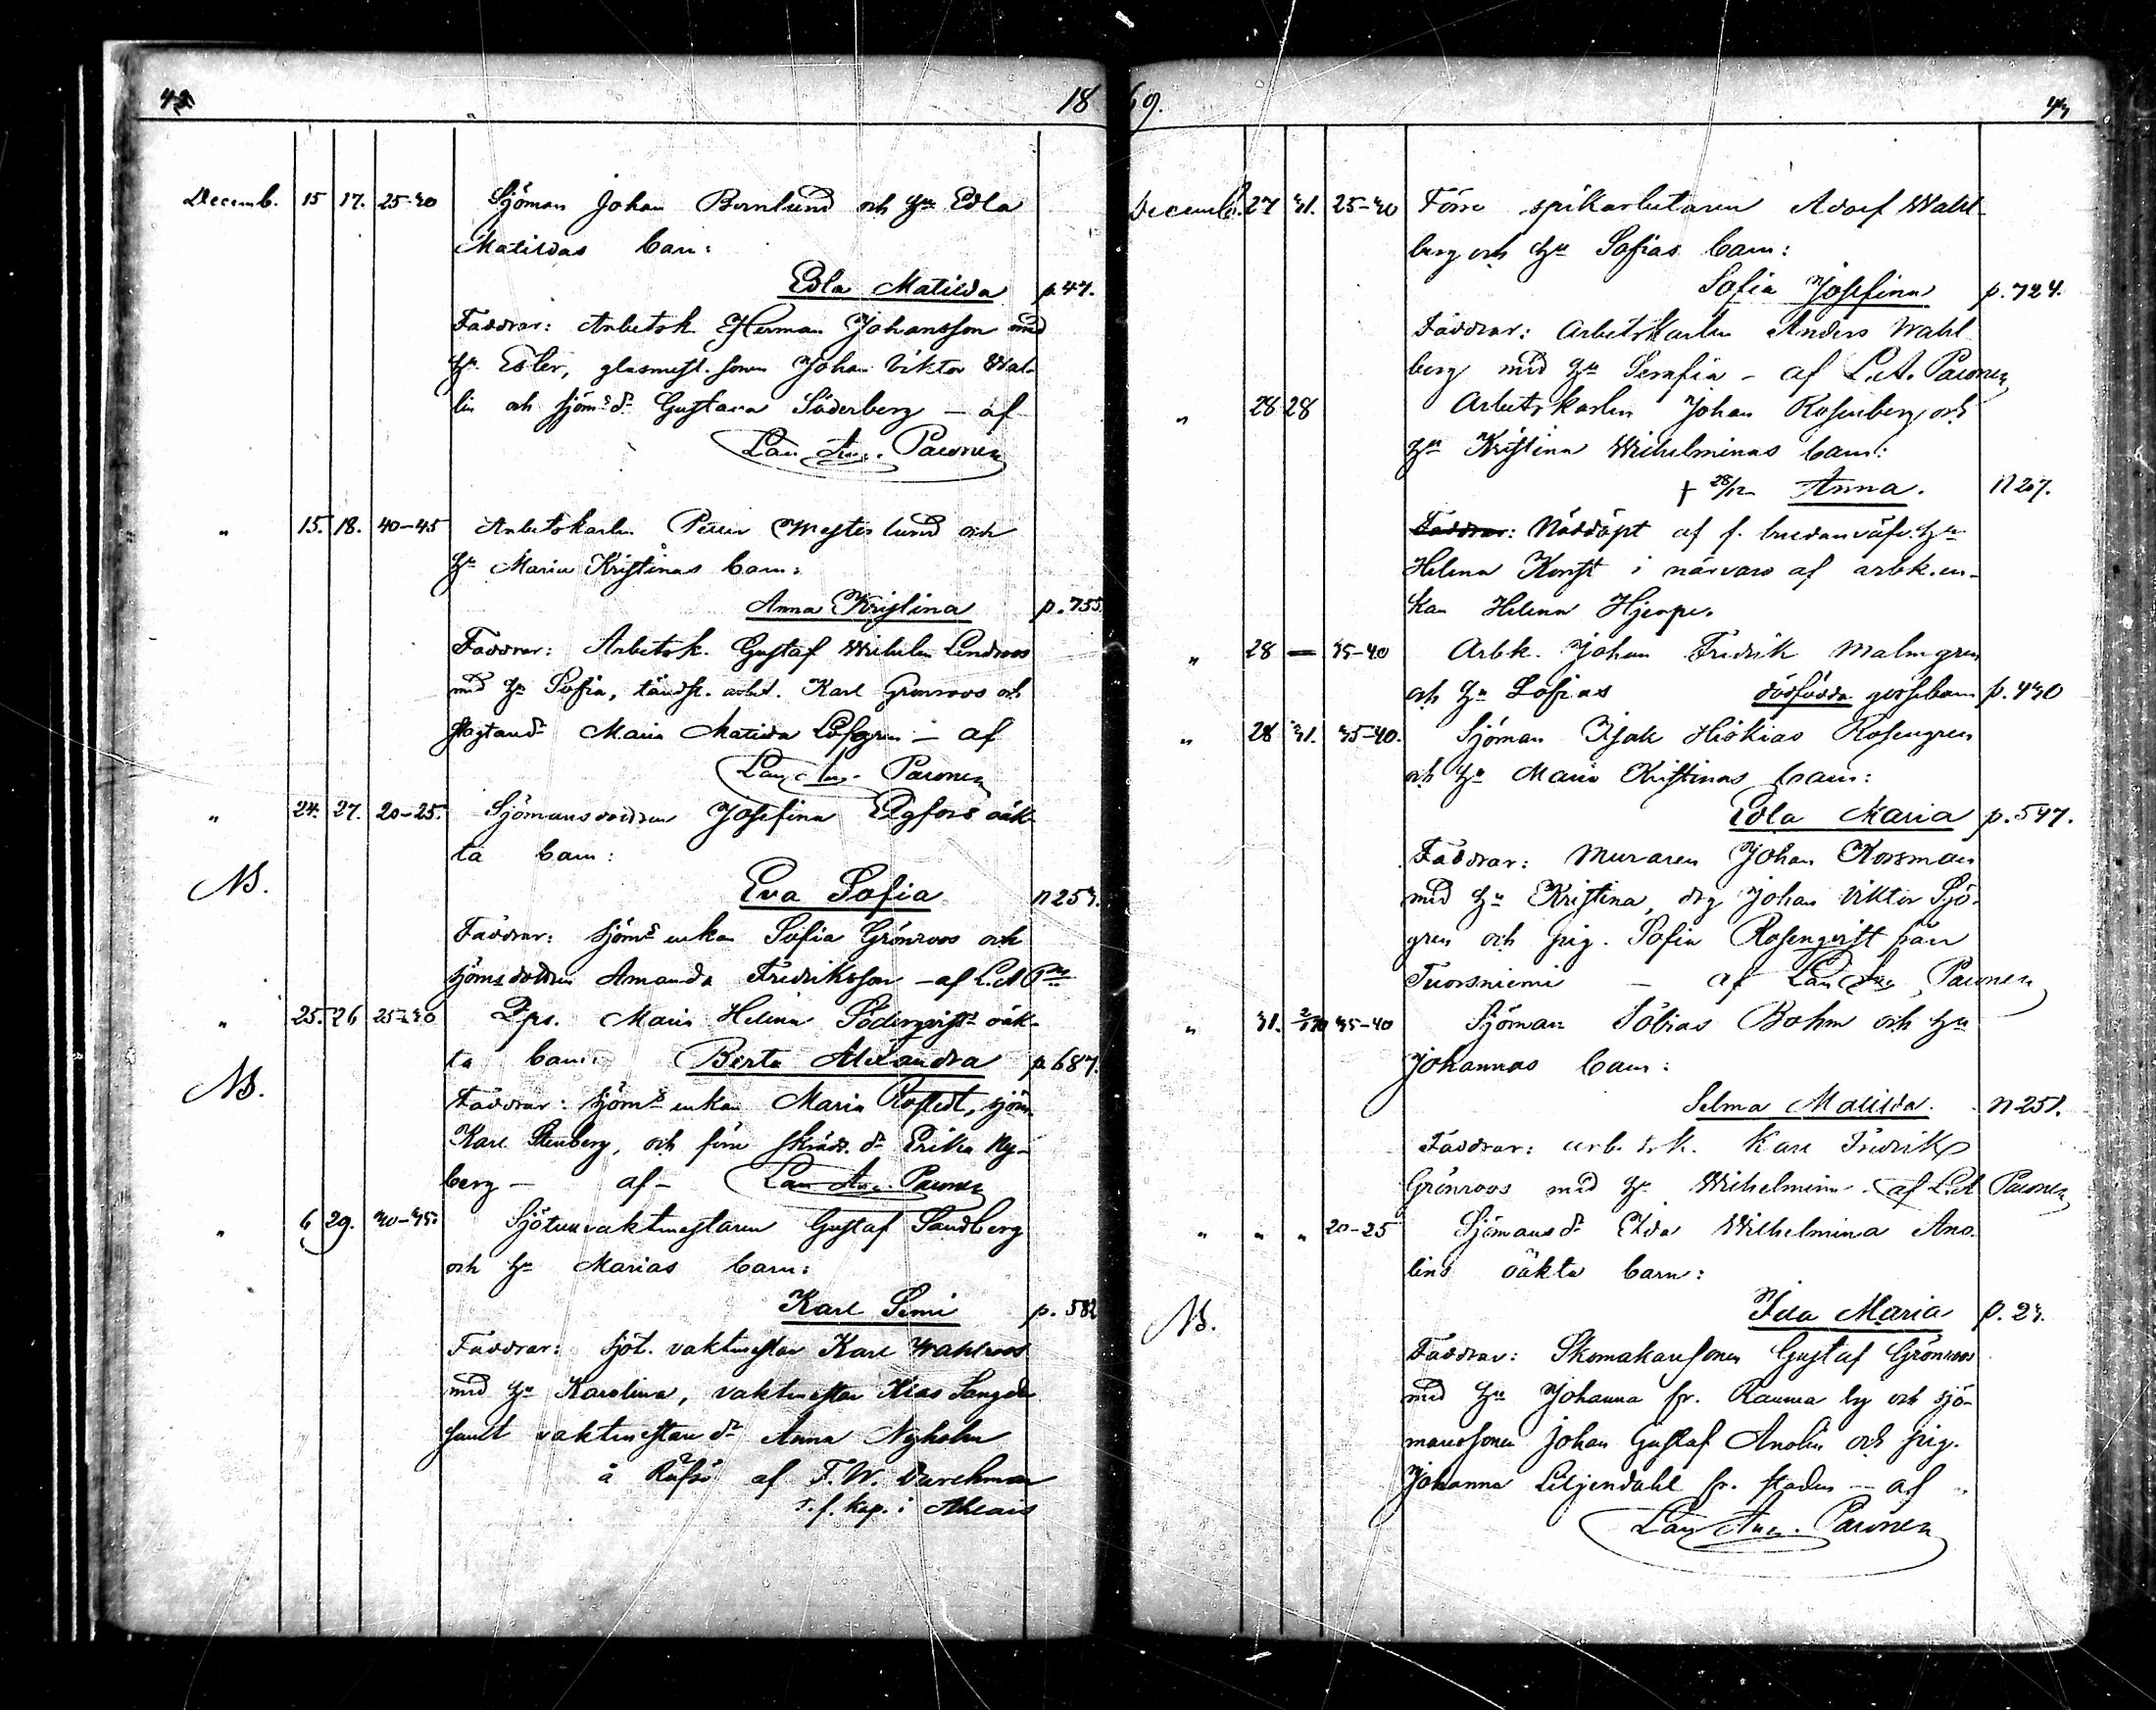 42
18
Decemb. 15 17. 25-30 Sjöman Johan Bernlund och Hu Edla
Matildas barn:
Edla Matilda p. 47.
Faddrar: Arbetsk. Herman Johansson med
Hu Ester, glasmest. sonen Johan Viktor Wal-
lin och sjöms dr Gustava Söderberg – af
Lau. Aug. Paronen
" 15. 18. 40-45 Arbetskarln Petter Westerlund och
Hu Maria Kristinas barn:
Anna Kristina p. 755.
Faddrar: Arbetsk. Gustaf Wilhelm Lindroos
med Hu Sofia, tändst. arbet. Karl Grönroos och
Maria Matilda Löfgren – af
Lau. Aug. Paronen
" 24. 27. 20-25. Sjömansdottren Josefina Elgfors oäk-
ta barn:
NB.
Eva Sofia n 253.
Faddrar: Sjöms enkan Sofia Grönroos och
sjömsdottren Amanda Fredriksson – af L. A. Pnn
" 25. 26 25-30 Pigs. Maria Helena Söderqvists oäk-
ta barn: Berta Alexandra p. 687.
NB.
Faddrar: Sjöms enkan Maria Rostedt, sjöm.
Karl Stenberg, och förre skrädd. dr Erika Ny-
berg – af – Lau. Aug. Paronen
" 6 29. 30-35. Sjötullvaktmestaren Gustaf Sandberg
och Hu Marias barn:
Karl Simi p. 582
Faddrar: Sjöt. vaktmestar Karl Wahlroos
med Hu Karolina, vaktmestar Klas Langen
samt vaktmestare dr Anna Nyholm
å Räfsö af F. W. Durchman
v. f. kap. i Ahlais
69.
43
Decemb. 27 31. 25-30 Förre spikarbetaren Adolf Wahl-
berg och Hu Sofias barn:
Sofia Josefina p. 724.
Faddrar: Arbetskarlen Anders Wahl-
berg med Hu Serafia – af L. A. Paronen
" 28 28 Arbetskarlen Johan Rosenberg och
Hu Kristina Wilhelminas barn:
† 28/12 Anna. n 207.
Faddrar: Nöddöpt af f. hu
Helena Korst i närvaro af arbk. en-
kan Helena Hjerpe.
" 28 — 35-40 Arbk. Johan Fredrik Malmgren
och Hu Sofias dödfödda gossebarn p. 430
" 28 31. 35-40. Sjöman Isak Hiskias Rosengren
och Hu Maria Kristinas barn:
Edla Maria p. 597.
Faddrar: Muraren Johan Korsman
med Hu Kristina, drg Johan Viktor Sjö-
gren och pig. Sofia Rosenqvist från
Tuorsniemi – af Lau. Aug. Paronen
" 31. 2/1 70 35-40 Sjöman Tobias Bohm och Hu
Johannas barn:
Selma Matilda. n 251.
Faddrar: arb. k. Karl Fredrik
Grönroos med Hu Wilhelmina. af L. A. Paronen
" " " 20-25 Sjömans dr Eda Wilhelmina Ano-
lins oäkta barn:
NB.
Ida Maria p. 23.
Faddrar: Skomakaresonen Gustaf Grönroos
med Hu Johanna fr. Rauma by och sjö-
manssonen Johan Gustaf Anolin och pig.
Johanna Liljendahl fr. staden – af
Lau. Aug. Paronen